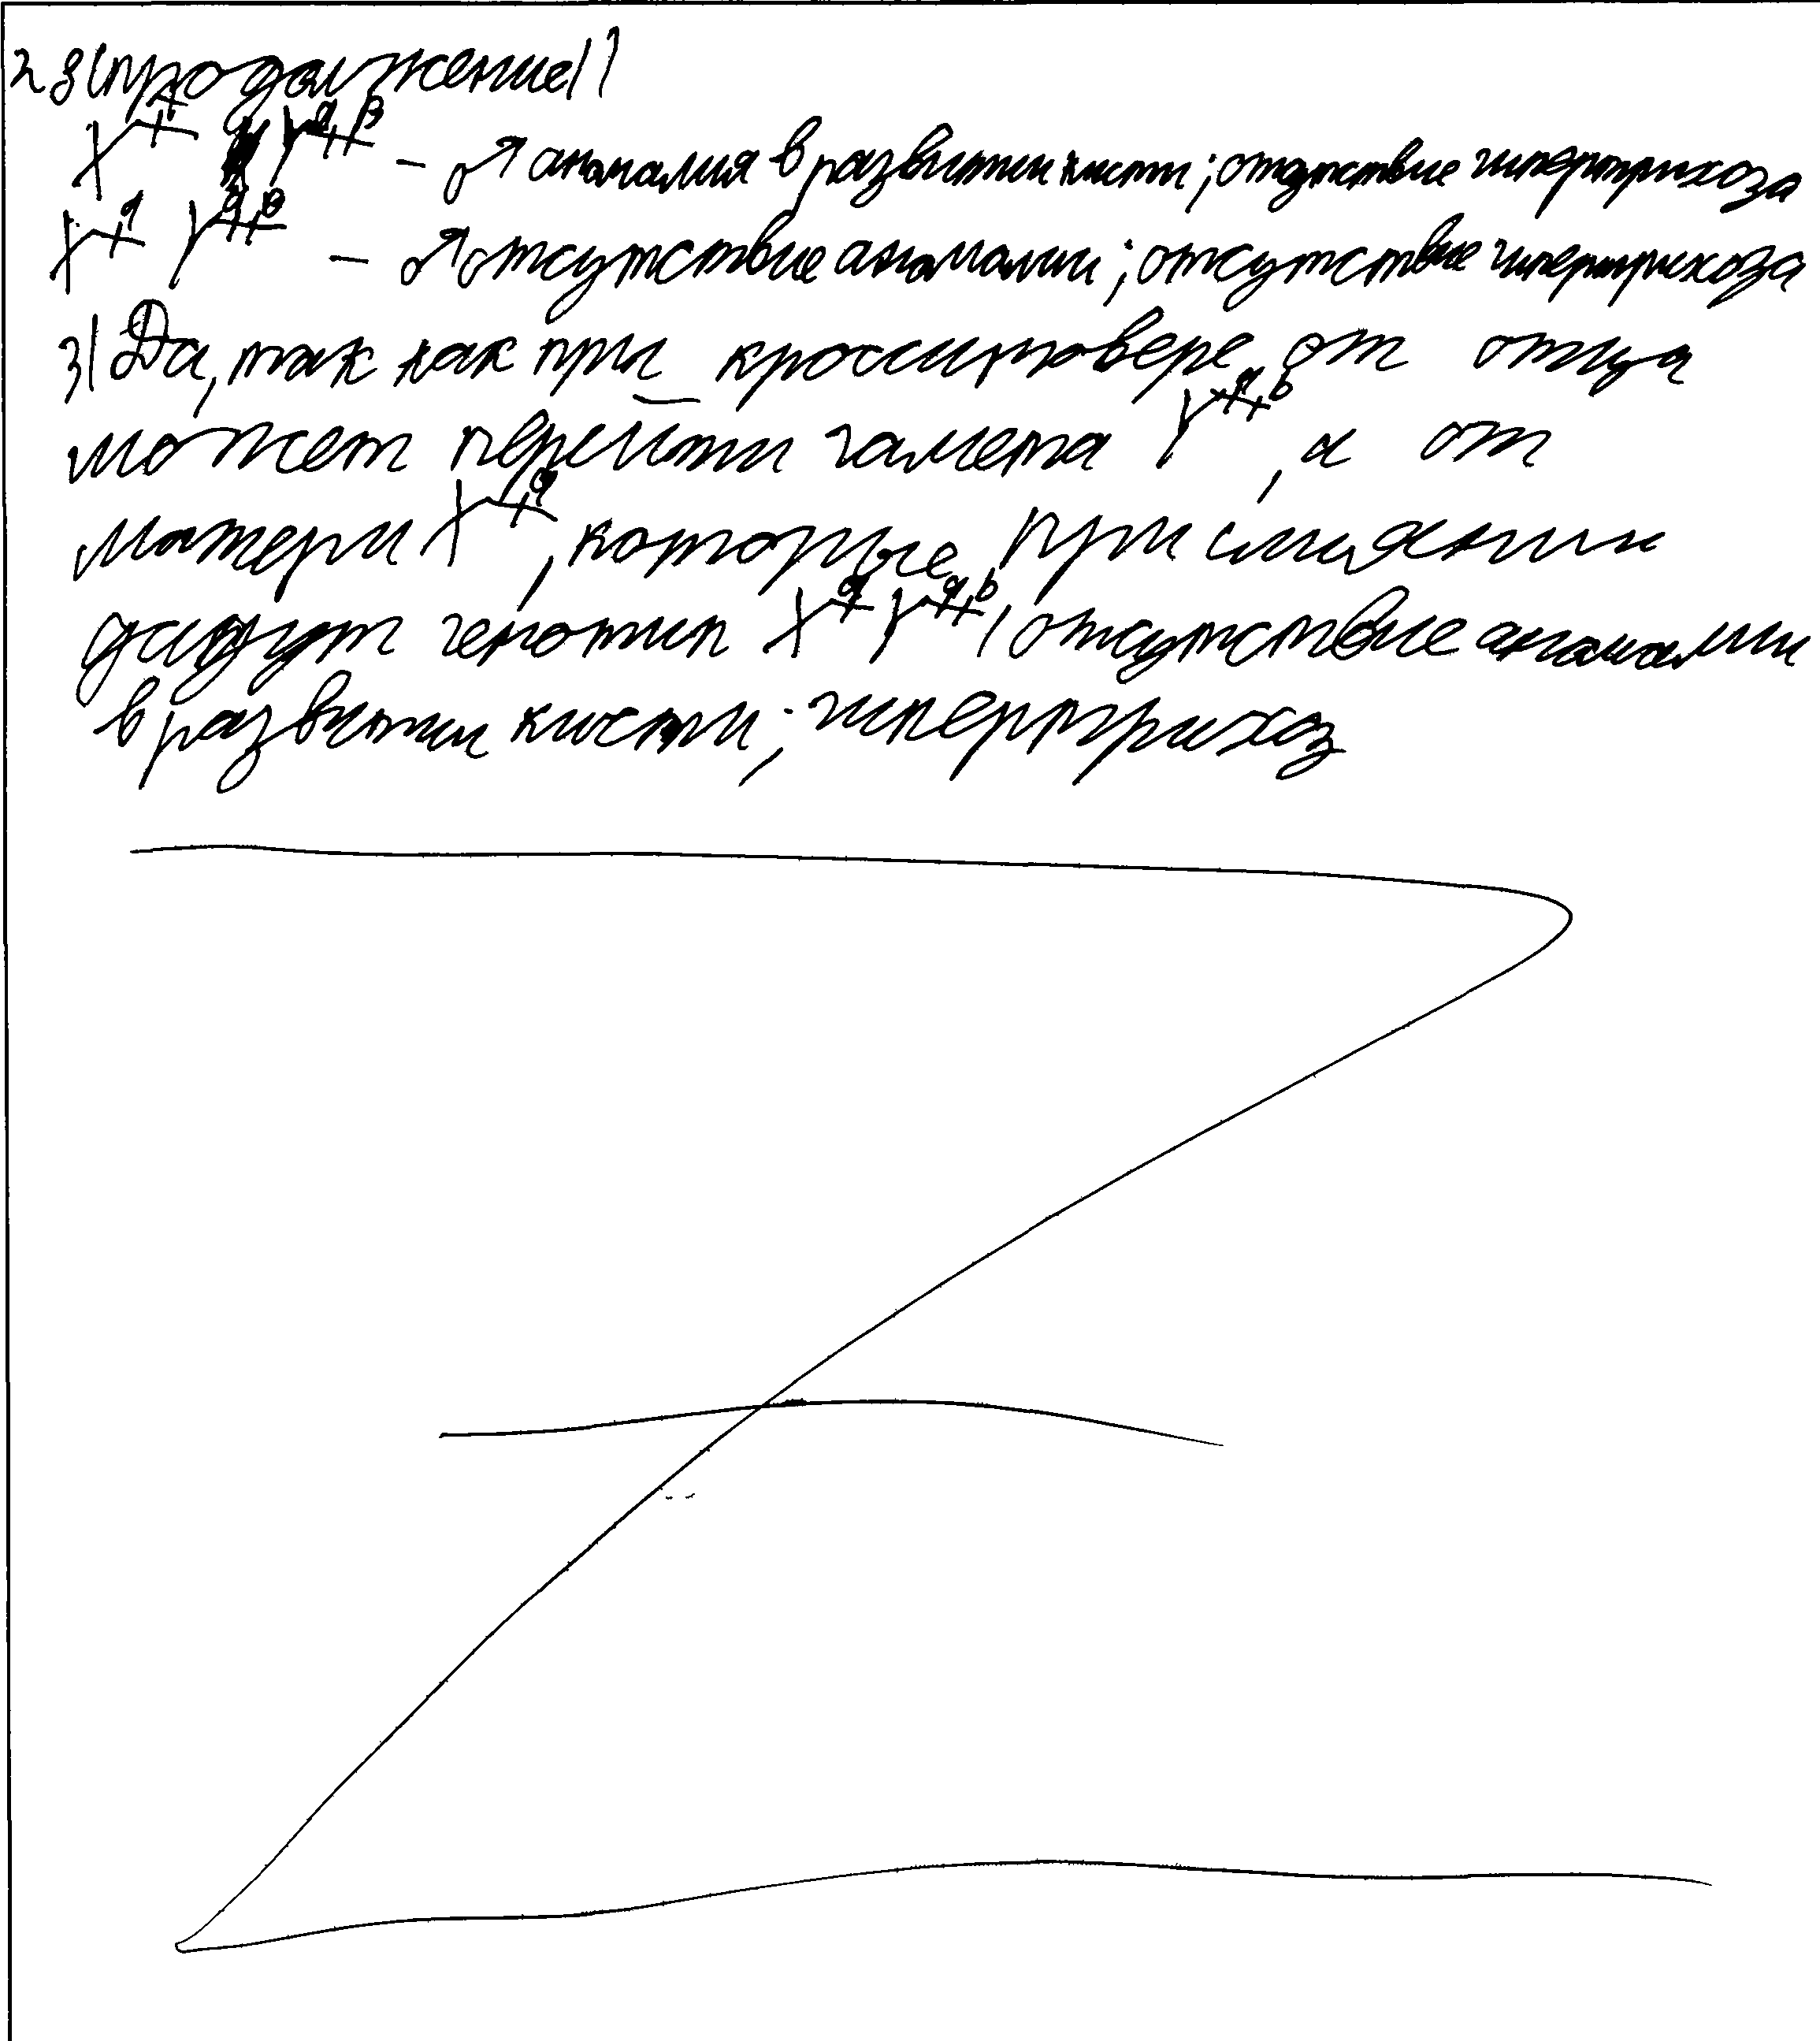 28 (продолжение)
X^A Y^aB – ♂ аномалия в развитии кисти; отсутствие гипертрихоза
X^a Y^aB – ♂ отсутствие аномалии; отсутствие гипертрихоза
3) Да, так как при кроссинговере от отца
может перейти гамета Y^ab, а от
матери X^a, которые при слиянии
дадут генотип X^a Y^ab (отсутствие аномалии
в развитии кисти; гипертрихоз